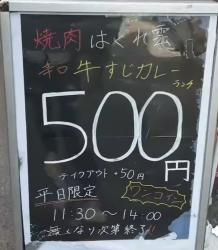 焼肉 はぐれ雲
和牛すじカレー
ランチ
500円
テイクアウト +50円
平日限定
ワンコイン
11:30〜14:00
無くなり次第終了!!